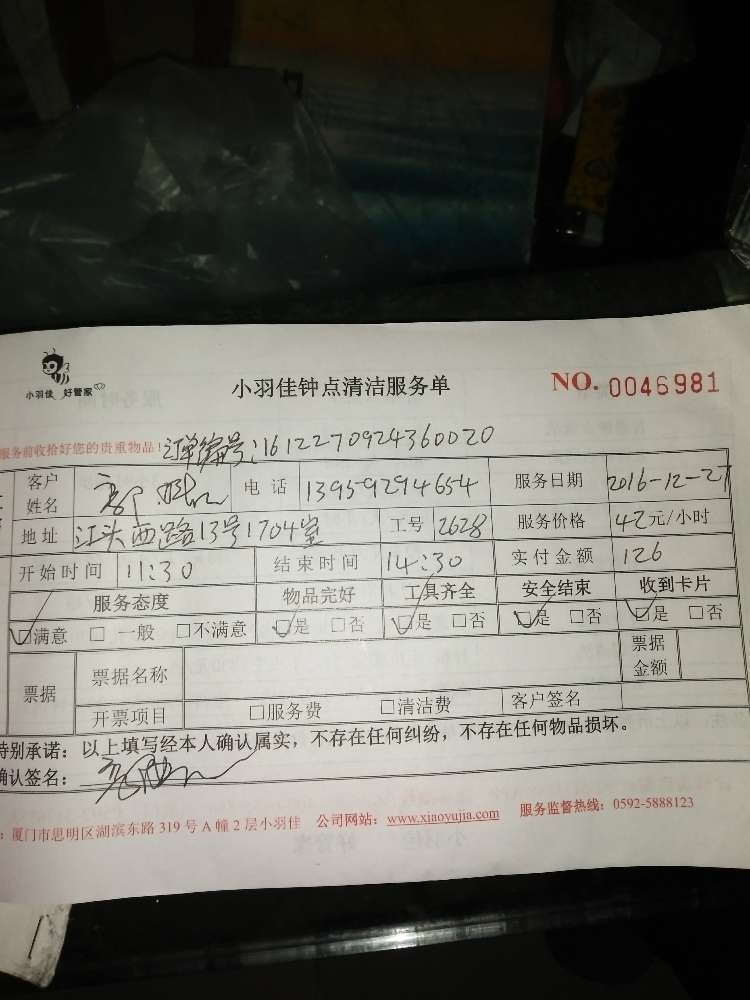 小羽佳 好管家
小羽佳钟点清洁服务单
NO. 0046981
服务前收拾好您的贵重物品!
订单编号:1612270924360020
客户姓名 电话 13959294654 服务日期 2016-12-27
地址 江头西路13号1704室 工号 2628 服务价格 42元/小时
开始时间 11:30 结束时间 14:30 实付金额 126
服务态度 物品完好 工具齐全 安全结束 收到卡片
☑满意 □一般 □不满意 ☑是 □否 ☑是 □否 ☑是 □否 ☑是 □否
票据 票据名称 票据金额
开票项目 □服务费 □清洁费 客户签名
特别承诺:以上填写经本人确认属实,不存在任何纠纷,不存在任何物品损坏。
确认签名:
:厦门市思明区湖滨东路319号A幢2层小羽佳 公司网站:www.xiaoyujia.com 服务监督热线:0592-5888123